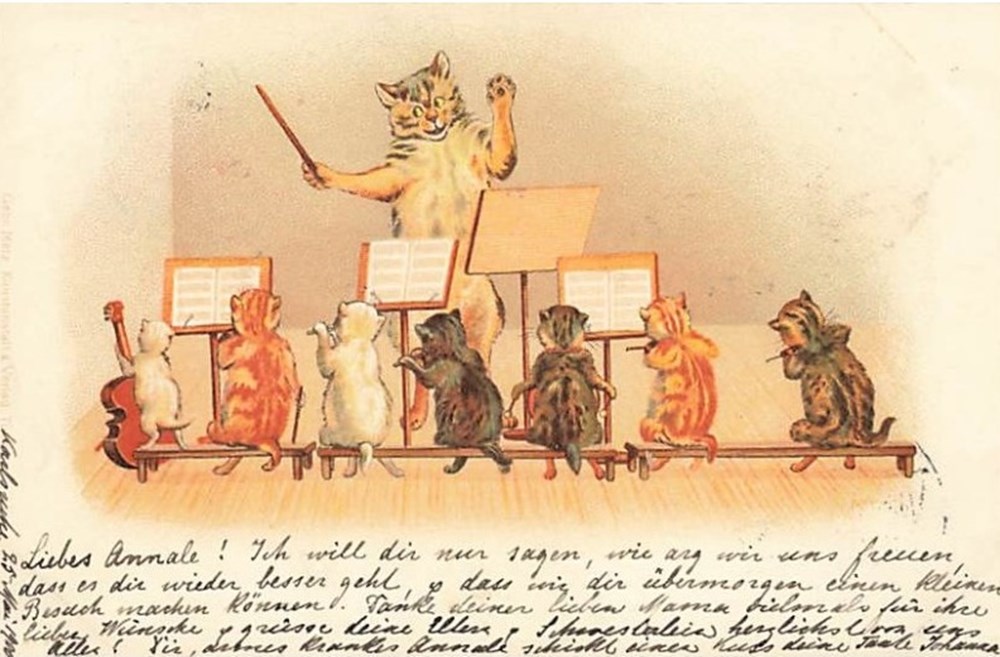 Liebes Annale! Ich will dir nur sagen, wie arg wir uns freuen,
dass es dir wieder besser geht, & dass wir dir übermorgen einen kleinen
Besuch machen können. Danke deiner lieben Mama vielmals für ihre
lieben Wünsche & grüsse deine Eltern & Schwesterlein herzlichst von uns
Allen! Dir, armes krankes Annale schickt einen Kuss deine Tante Johanna
Karlsruhe, 25. Mai